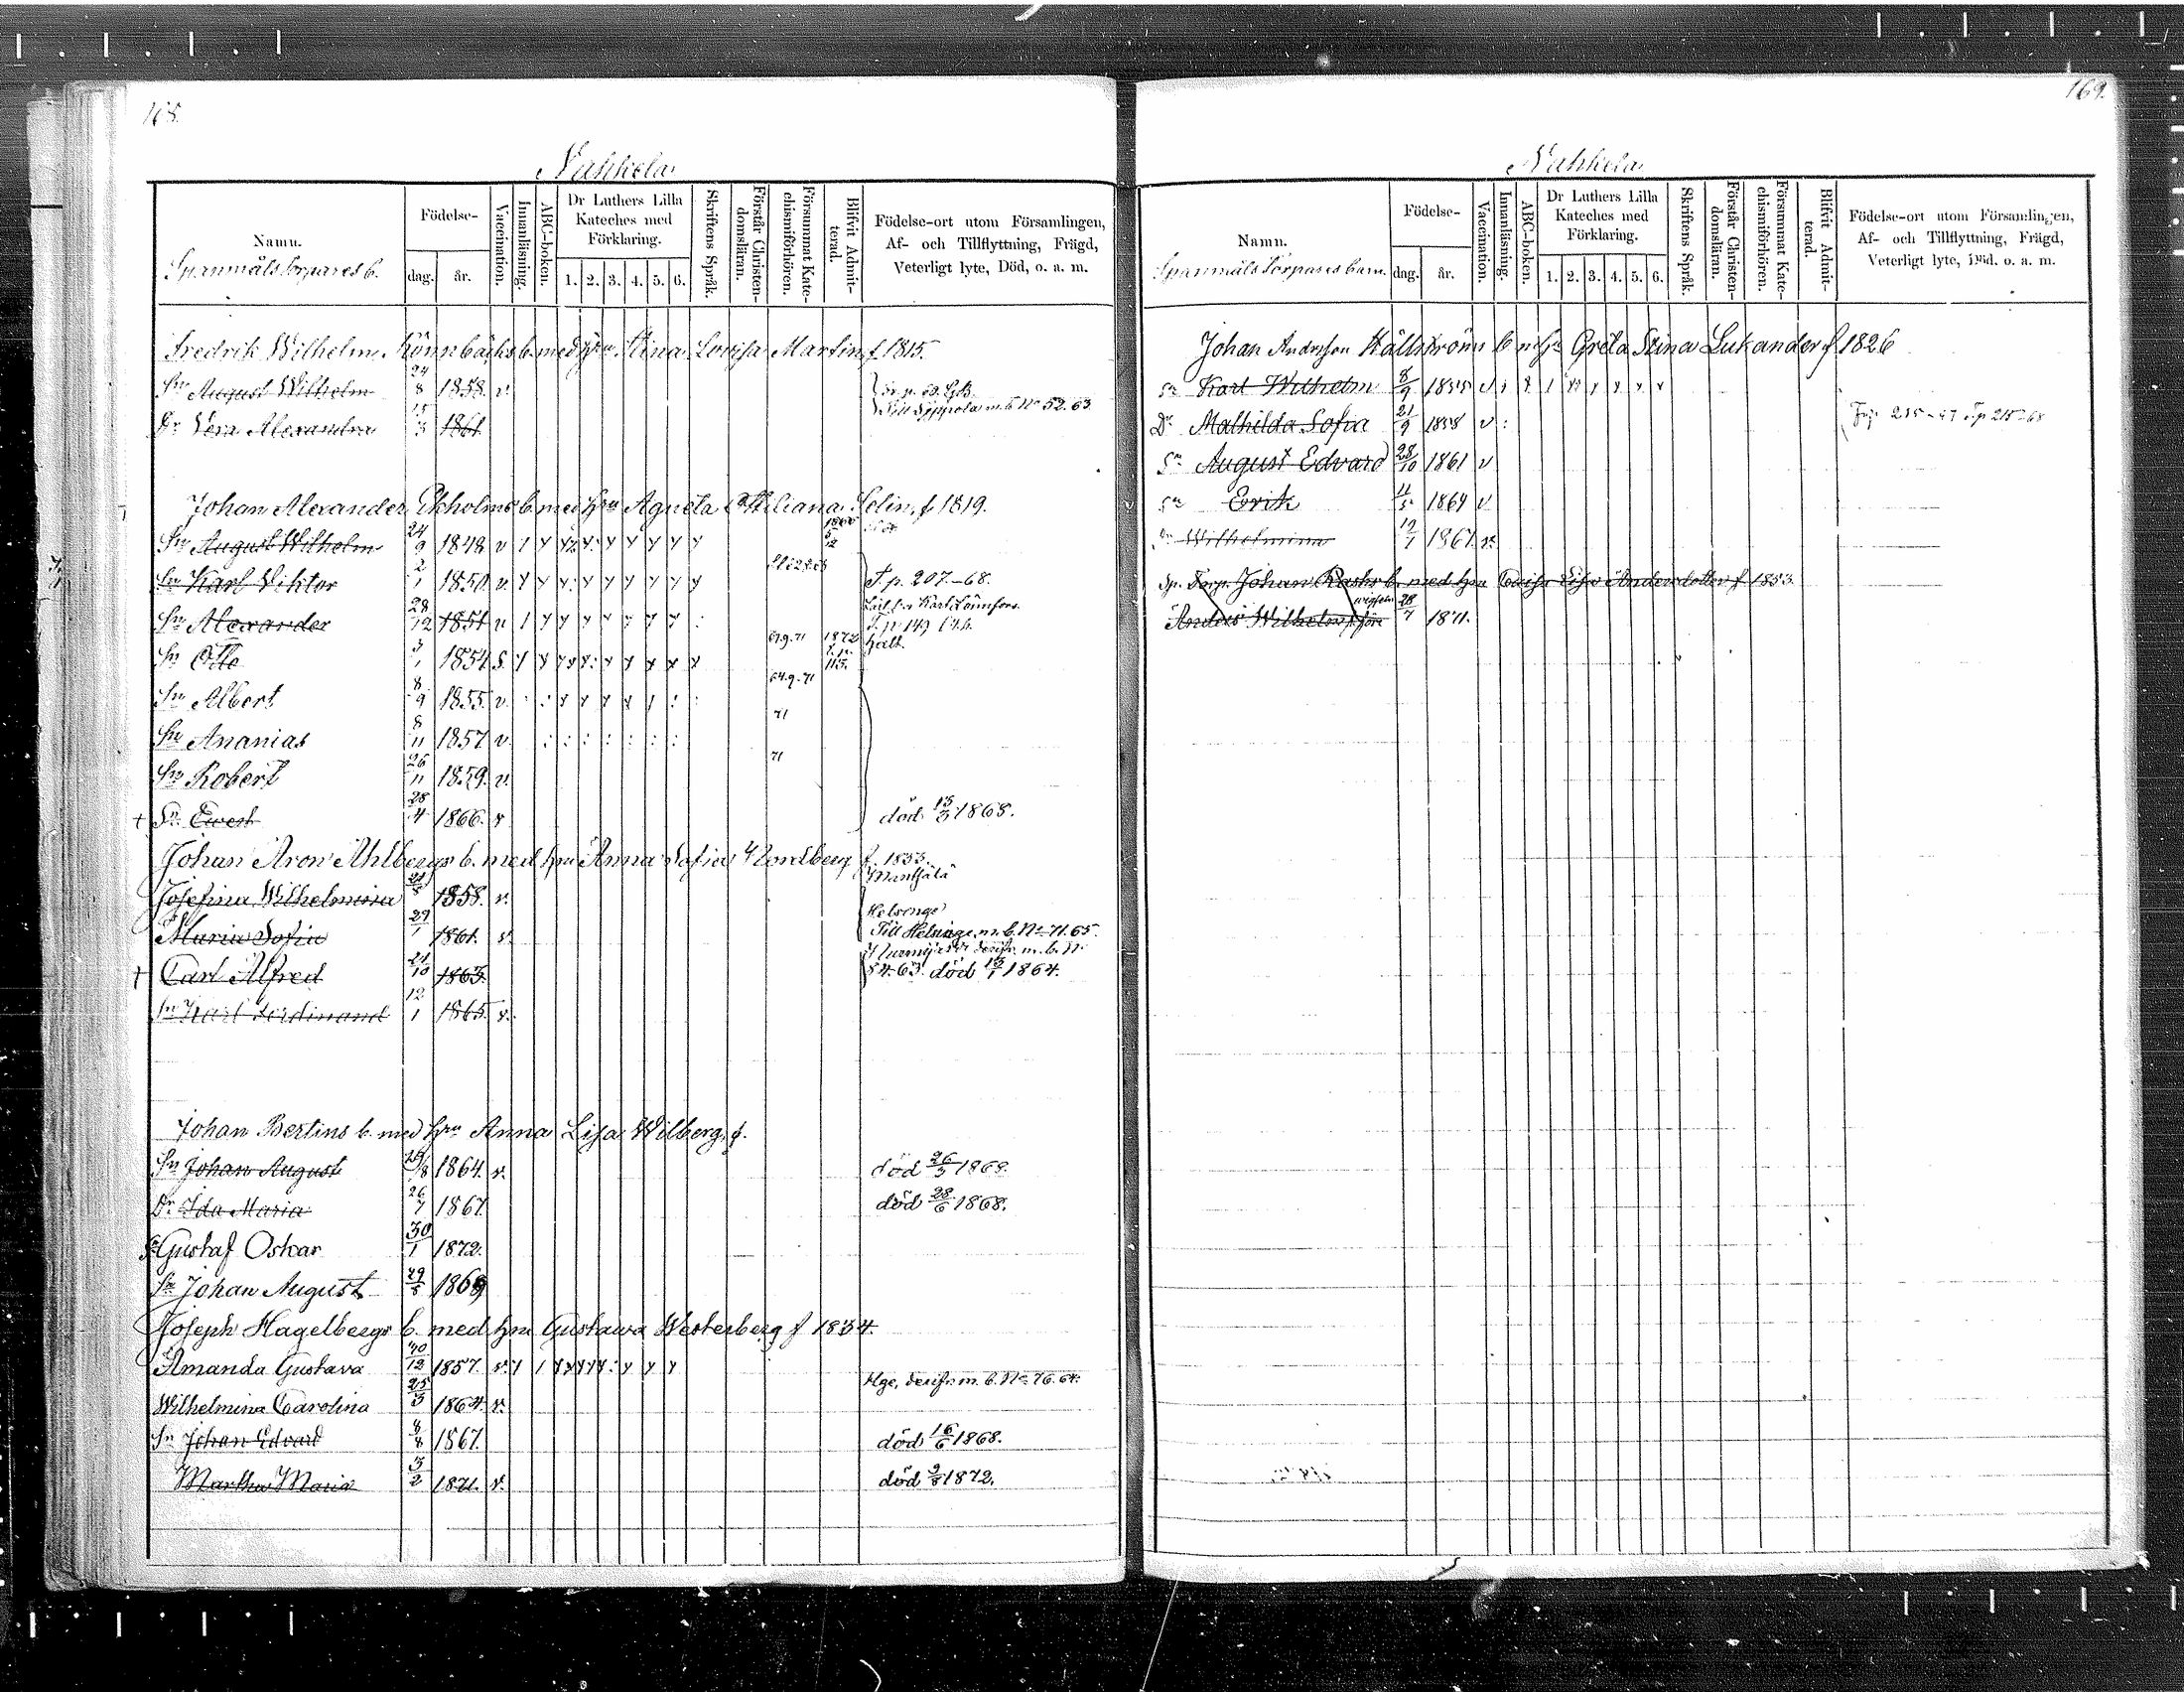 168.
Nahkela
Namn.
Spanmåls torpares b.
Födelse-
dag. år.
Vaccination.
Innanläsning.
ABC-boken.
Dr Luthers Lilla Kateches med Förklaring.
1. 2. 3. 4. 5. 6.
Skriftens Språk.
Förstår Christendomsläran.
Försummat Katechismiförhören.
Blifvit Admitterad.
Födelse-ort utom Församlingen, Af- och Tillflyttning, Frägd, Veterligt lyte, Död, o. a. m.
Fredrik Wilhelm Rönnbäcks b. med hru Stina Lovisa Martin f. 1815.
Sn August Wilhelm 24/8 1858. v.
Till Sippola m. b. No 52. 63.
Dr Vera Alexandra 15/3 1861
Johan Alexander Ekholms b. med hru Agneta Selin, f. 1819.
Sn August Wilhelm 24/9 1848 v
Sn Karl Viktor 2/1 1850. v. T. p. 207.-68.
Sn Alexander 28/12 1851 v T. p. 149
Sn Otto 3/1 1854 67.9.71 1872 halt.
Sn Albert 8/9 1855. v. 64.9.71
Sn Ananias 8/11 1857 v. 71
Sn Robert 26/11 1859. v. 71
† Sn Ewert 28/4 1866. v död 13/3 1868.
Johan Aron Ahlbergs b. med hru Anna Sofia Nordberg f. 1833.
Mantsälä
Josefina Wilhelmina 21/8 1858. v.
Helsinge
Maria Sofia 27/1 1861. v. Till Helsinge m. b. No 71. 65.
Nurmijärvi derifr. m. b. No
† Carl Alfred 21/10 1863. 84. 63. död 13/1 1864.
Sn Karl Ferdinand 12/1 1865. v.
Johan Bertins b. med hru Anna Lisa Wilberg f.
Sn Johan August 1864. v. död 26/5 1868.
Dr Ida Maria 26/7 1867. död 28/6 1868.
Sn Gustaf Oskar 30/1 1872.
Sn Johan August 29/5 1869
Joseph Hagelbergs b. med hru Gustawa Westerberg f 1834.
Amanda Gustava 1857. v.
Hge, derifr. m. b. No 76. 64.
Wilhelmina Carolina 25/3 1864. v.
Sn Johan Edvard 8/8 1867. död 16/6 1868.
Martha Maria 3/2 1871. v. död 9/8 1872.
169.
Nahkela
Namn.
Spanmåls Torpares barn.
Födelse-
dag. år.
Vaccination.
Innanläsning.
ABC-boken.
Dr Luthers Lilla Kateches med Förklaring.
1. 2. 3. 4. 5. 6.
Skriftens Språk.
Förstår Christendomsläran.
Försummat Katechismiförhören.
Blifvit Admitterad.
Födelse-ort utom Församlingen, Af- och Tillflyttning, Frägd, Veterligt lyte, Död, o. a. m.
Johan Andersson Källström b m hu Greta Stina Lukander f 1826
Sn Karl Wilhelm 8/9 1855 v
Dr Mathilda Sofia 21/9 1858 v
Sn August Edvard 28/10 1861 v
Sn Erik 11/5 1864 v
Dr Wilhelmina 1867. v.
Sp. Torp. Johan b. med hru Lovisa Lisa Andersdotter f 1833.
Anders Wilhelm 28/7 1871.